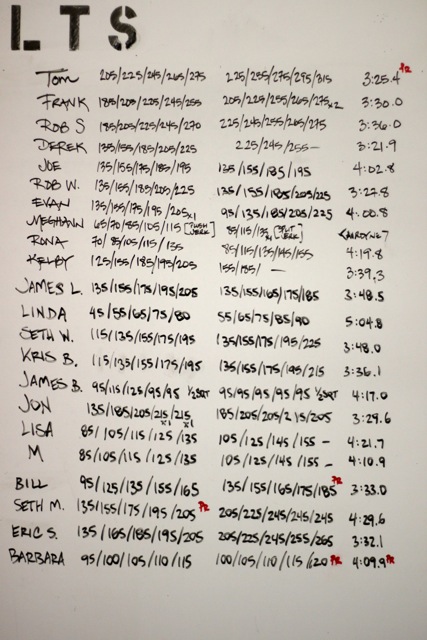 LTS
Tom 205/225/245/265/275 225/255/275/295/315 3:25.4 PR
FRANK 185/205/225/245/255 205/225/255/265/275x2 3:30.0
ROB S 185/205/225/245/270 225/245/255/265/275 3:36.0
DEREK 135/155/185/205/225 225/245/255— 3:21.9
JOE 135/155/175/185/195 135/155/185/195 4:02.8
ROB W. 135/155/185/205/225 135/155/185/205/225 3:27.8
EVAN 135/155/175/195/205x1 95/135/185/205/225 4:00.8
MEGHANN 65/70/85/105/115 [PUSH JERK] 85/115/135 [SPLIT JERK]
RONA 70/85/105/115/155 85/115/135/145/155 4:19.8
KELBY 125/155/185/195/205 155/185/ — 3:39.3
JAMES L. 135/155/175/195/205 135/155/165/175/185 3:48.5
LINDA 45/55/65/75/80 55/65/75/85/90 5:04.8
SETH W. 115/135/155/175/195 135/155/175/195/225 3:48.0
KRIS B. 115/135/155/175/195 135/155/175/195/215 3:36.1
JAMES B. 95/115/125/95/95 1/2 SQT 95/95/95/95/95 1/2 SQT 4:17.0
JON 135/185/205/215/215 185/205/205/215/205 3:29.6
x1 x1
LISA 85/105/115/125/135 105/125/145/155 – 4:21.7
M 85/105/115/125/135 105/125/145/155 – 4:10.9
BILL 95/125/135/155/165 135/155/165/175/185 PR 3:33.0
SETH M. 135/155/175/195/205 PR 205/225/245/245/245 4:29.6
ERIC S. 135/165/185/195/205 205/225/245/255/265 3:32.1
BARBARA 95/100/105/110/115 100/105/110/115/120 PR 4:09.9 PR